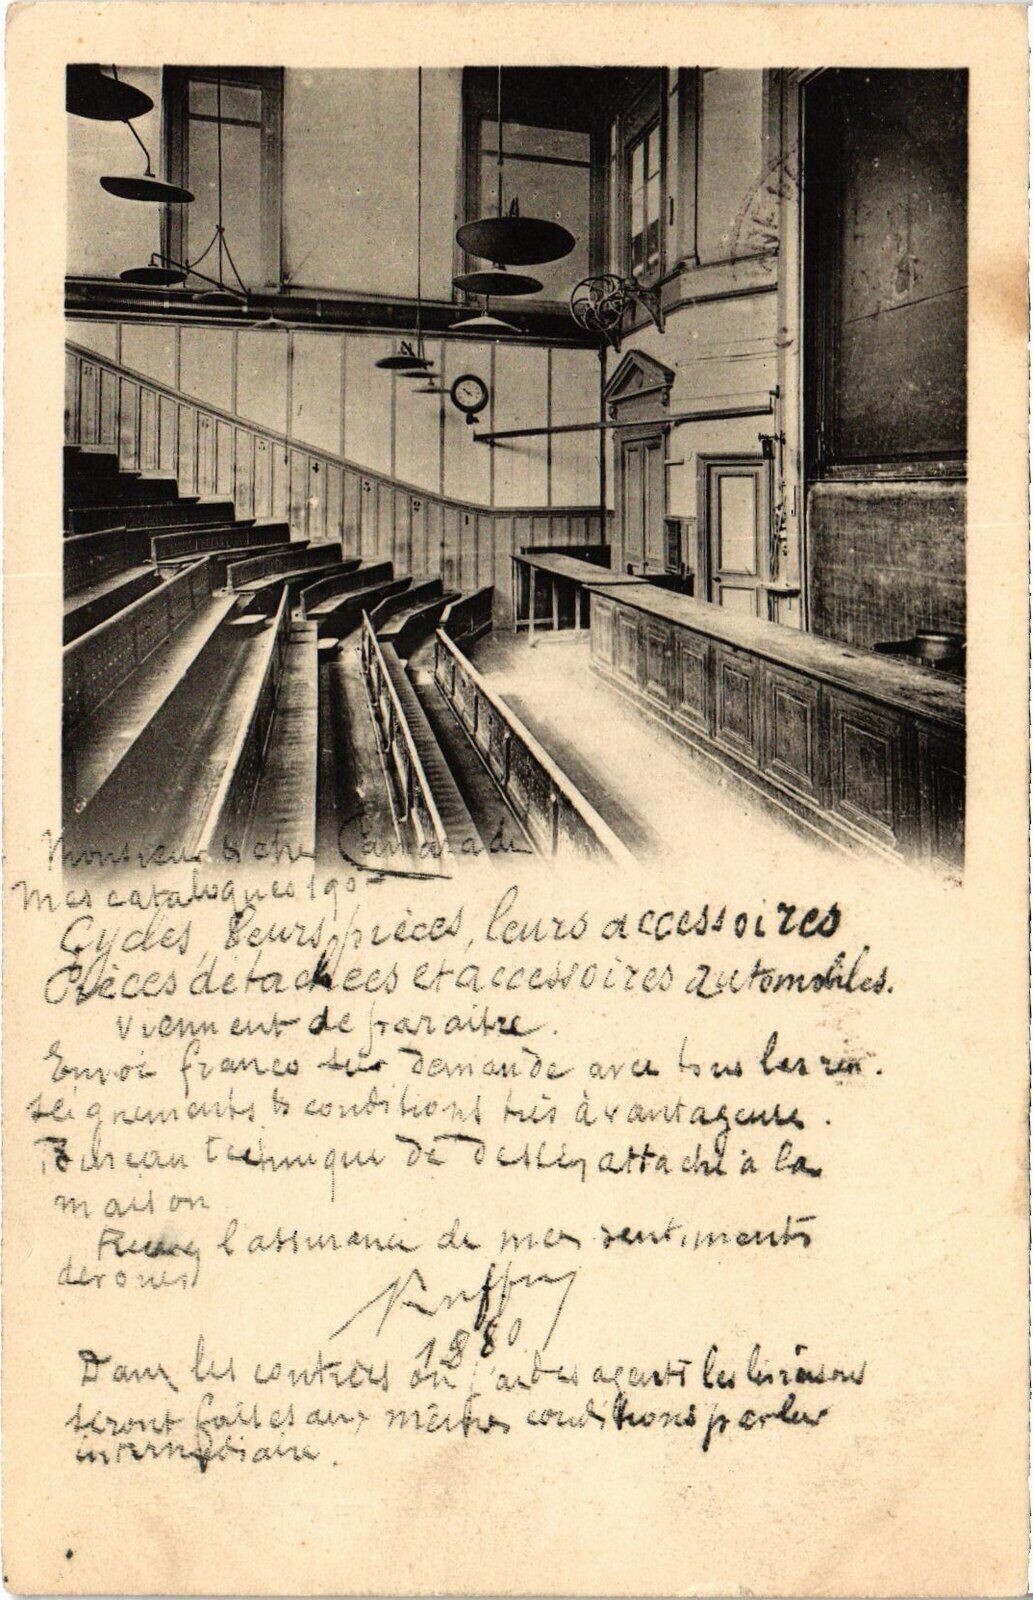 Monsieur & cher Camarade
Mes catalogues 190
Cycles, leurs pièces, leurs accessoires
Pièces détachées et accessoires automobiles.
viennent de paraitre.
Envoi franco sur demande avec tous les ren.
seignements & conditions très avantageuse.
Bureau technique de dessin attaché à la
maison
Recevez l'assurance de mes sentiments
dévoués
Ruffny
1880
Dans les contrées où j'ai des agents les livraisons
seront faites aux mêmes conditions par leur
intermédiaire.